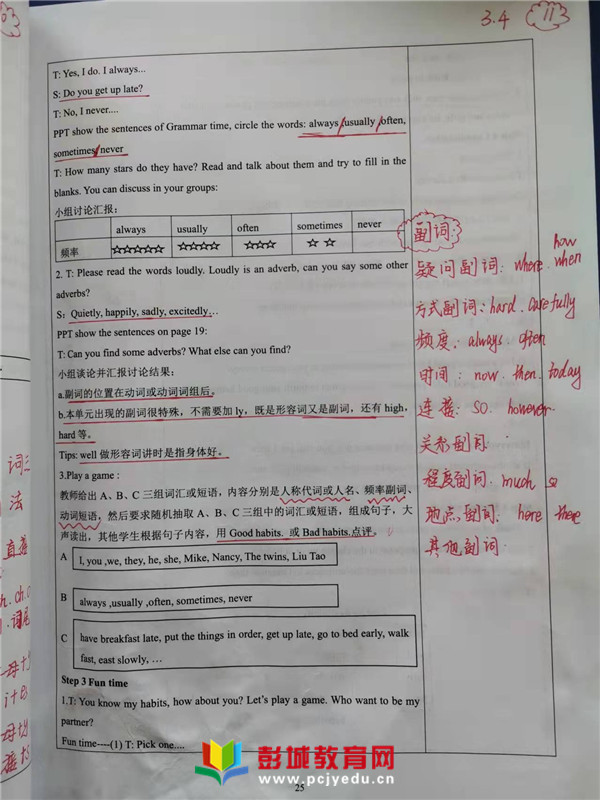 3.4
113
T: Yes, I do. I always...
S: Do you get up late?
T: No, I never....
PPT show the sentences of Grammar time, circle the words: always/usually/often,
sometimes/never
T: How many stars do they have? Read and talk about them and try to fill in the
blanks. You can discuss in your groups:
小组讨论汇报：
always usually often sometimes never
频率 ☆☆☆☆☆ ☆☆☆☆ ☆☆☆ ☆ ☆
2. T: Please read the words loudly. Loudly is an adverb, can you say some other
adverbs?
S：Quietly, happily, sadly, excitedly…
PPT show the sentences on page 19:
T: Can you find some adverbs? What else can you find?
小组谈论并汇报讨论结果：
a.副词的位置在动词或动词词组后。
b.本单元出现的副词很特殊，不需要加 ly，既是形容词又是副词，还有 high,
hard 等。
Tips: well 做形容词讲时是指身体好。
3.Play a game :
教师给出 A、B、C 三组词汇或短语，内容分别是人称代词或人名、频率副词、
动词短语，然后要求随机抽取 A、B、C 三组中的词汇或短语，组成句子，大
声读出，其他学生根据句子内容，用 Good habits. 或 Bad habits.点评。
A I, you ,we, they, he, she, Mike, Nancy, The twins, Liu Tao
B always ,usually ,often, sometimes, never
C have breakfast late, put the things in order, get up late, go to bed early, walk
fast, east slowly, …
Step 3 Fun time
1.T: You know my habits, how about you? Let's play a game. Who want to be my
partner?
Fun time----(1) T: Pick one....
25
副词:
how
疑问副词: where. when
方式副词: hard. carefully
频度: always. often
时间: now. then. today
连接: so. however.
关系副词.
程度副词. much so
地点副词. here there
其他副词.
法
彭城教育网
www.pcjyedu.cn